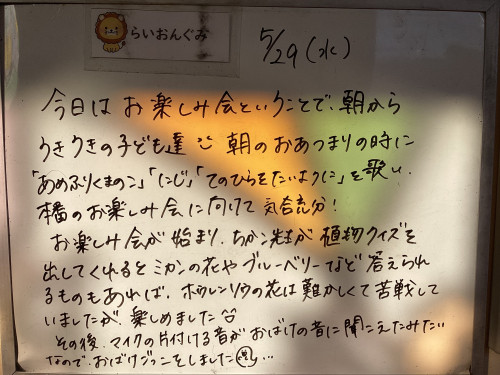 らいおんぐみ
5/29(水)
今日は お楽しみ会ということで、朝から
うきうきの子ども達 朝のおあつまりの時に
「あめふりくまのこ」「にじ」「てのひらをたいように」を歌い、
のお楽しみ会に向けて 気合充分!
お楽しみ会が始まり、ちかこ先生が 植物クイズを
出してくれると ミカンの花や ブルーベリーなど 答えられ
るものもあれば、ホウレンソウの花は難かしくて苦戦して
いましたが、楽しめました
その後、マイクの片付ける音が おばけの音に聞こえたみたい
なので、おばけごっこをしました …